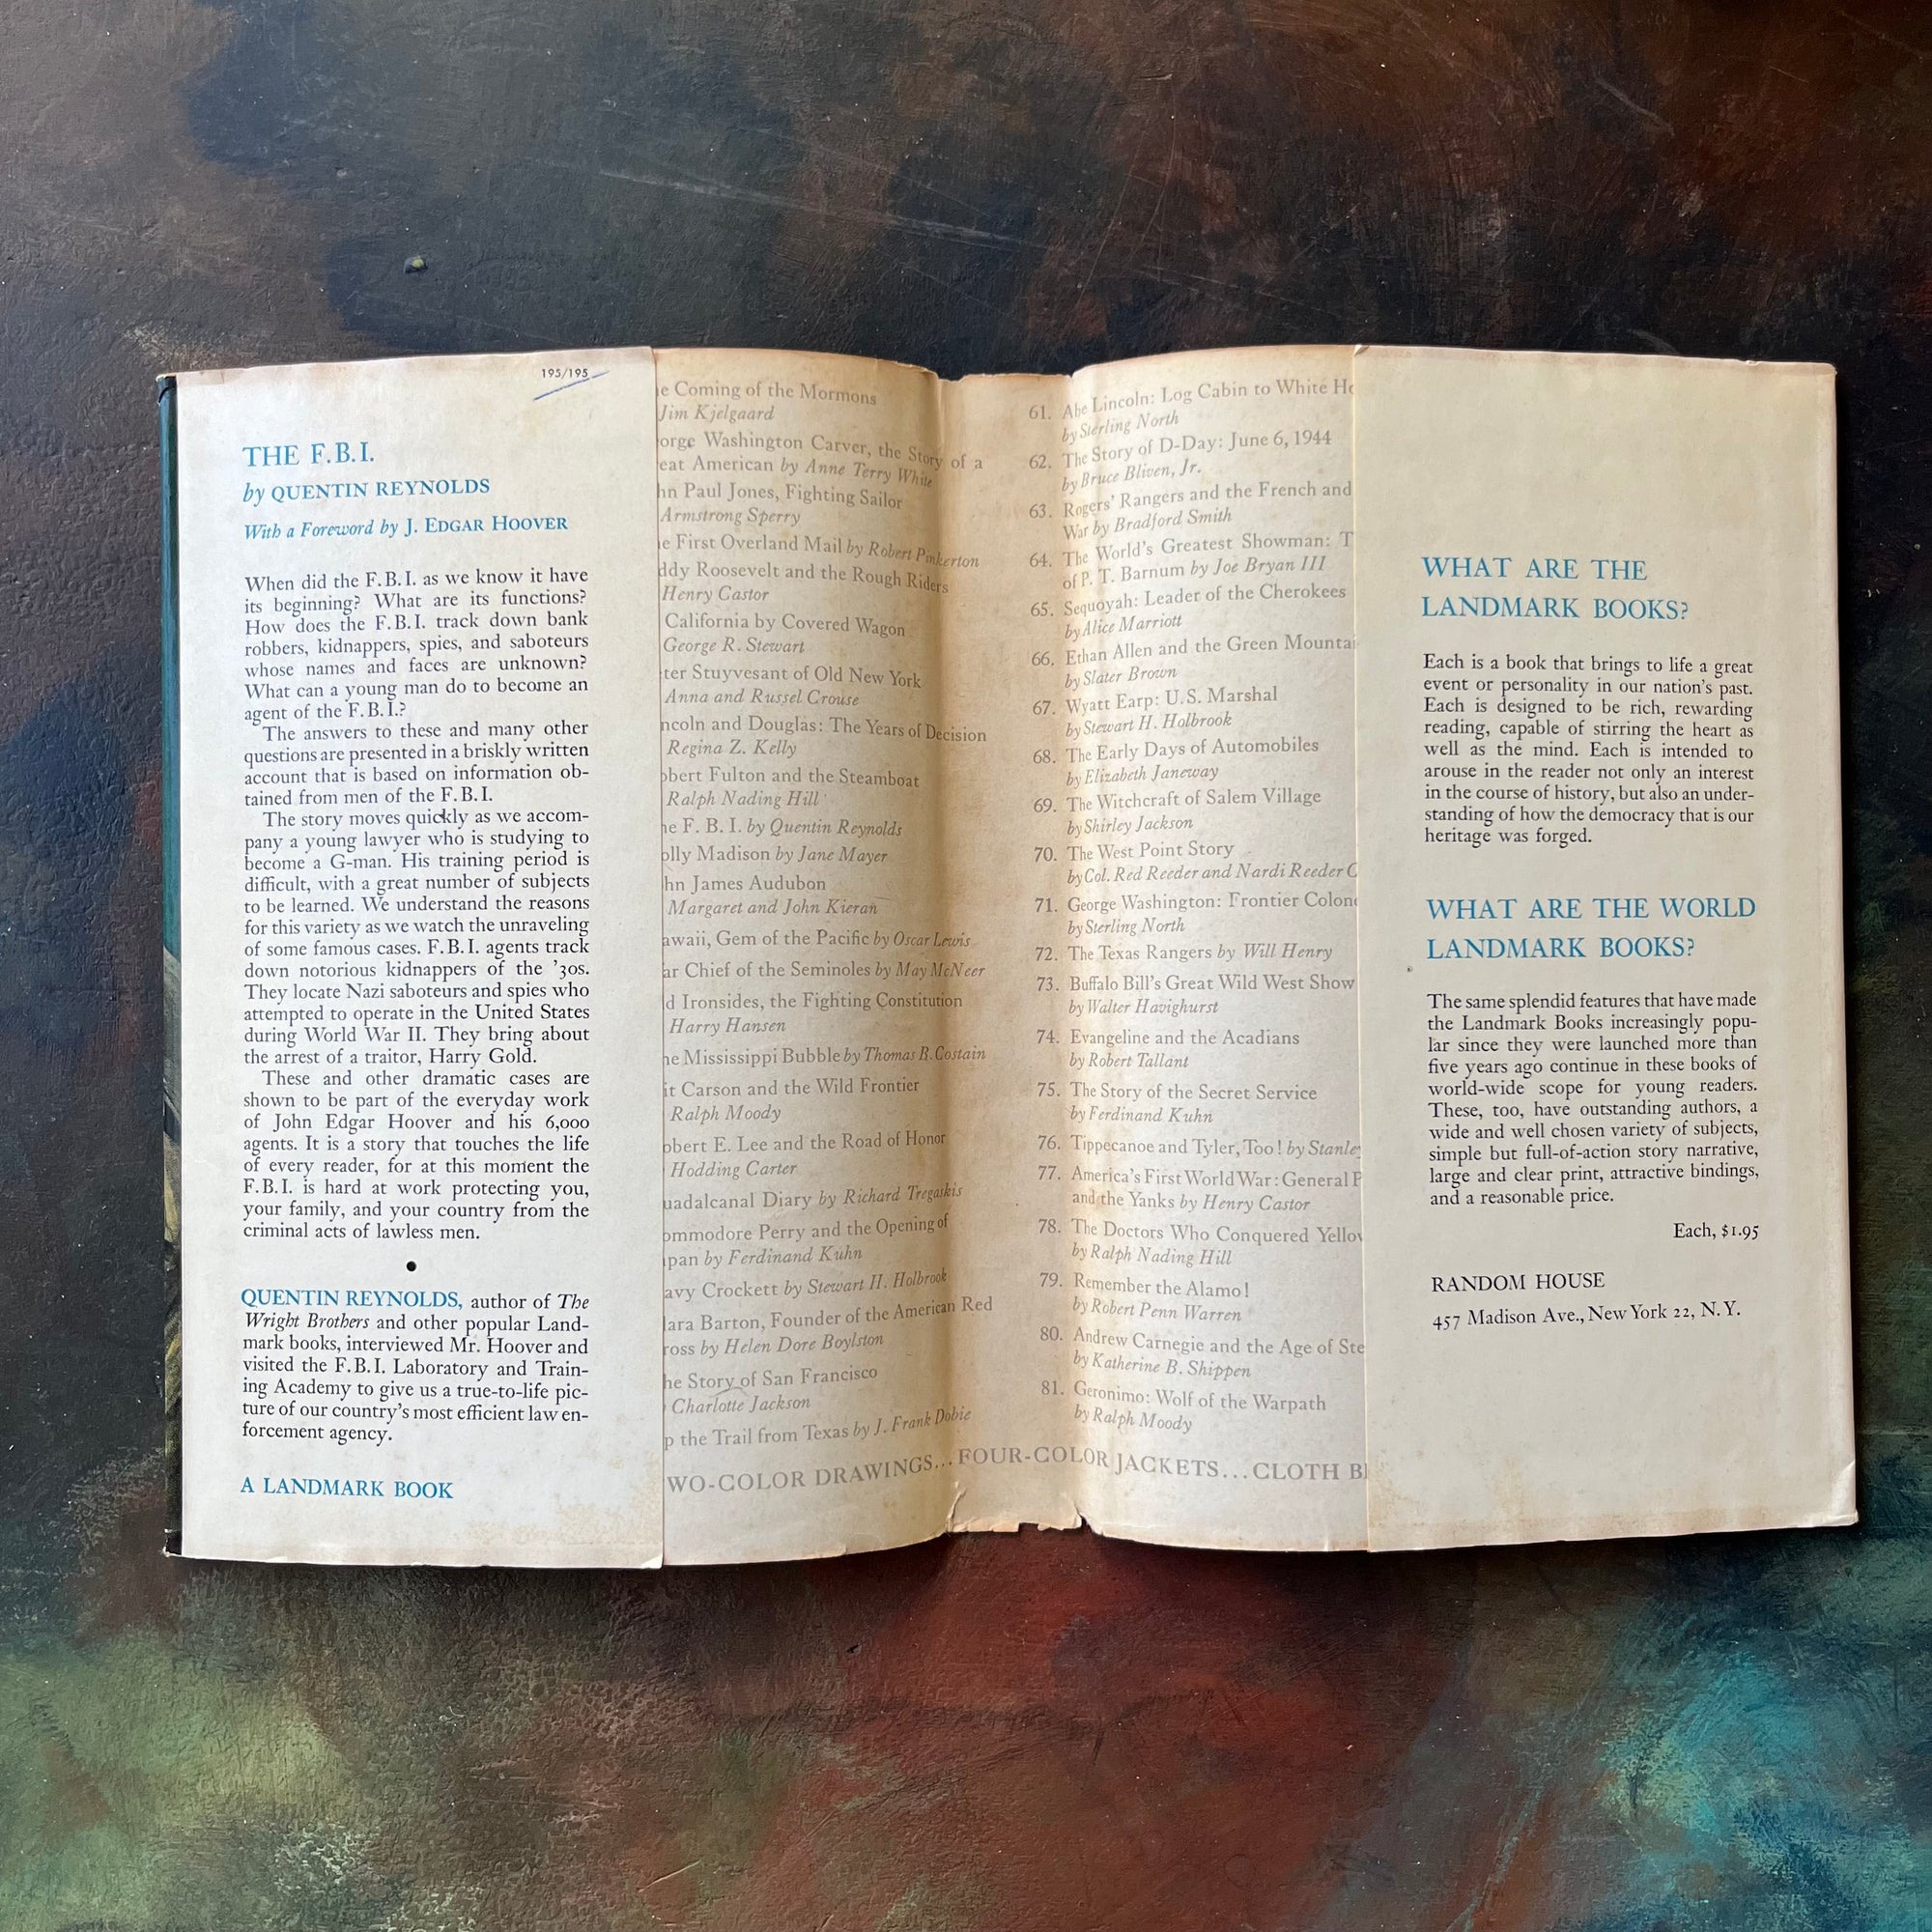 195/195
THE F.B.I.
by QUENTIN REYNOLDS
With a Foreword by J. EDGAR HOOVER
When did the F.B.I. as we know it have
its beginning? What are its functions?
How does the F.B.I. track down bank
robbers, kidnappers, spies, and saboteurs
whose names and faces are unknown?
What can a young man do to become an
agent of the F.B.I.?
The answers to these and many other
questions are presented in a briskly written
account that is based on information ob-
tained from men of the F.B.I.
The story moves quickly as we accom-
pany a young lawyer who is studying to
become a G-man. His training period is
difficult, with a great number of subjects
to be learned. We understand the reasons
for this variety as we watch the unraveling
of some famous cases. F.B.I. agents track
down notorious kidnappers of the '30s.
They locate Nazi saboteurs and spies who
attempted to operate in the United States
during World War II. They bring about
the arrest of a traitor, Harry Gold.
These and other dramatic cases are
shown to be part of the everyday work
of John Edgar Hoover and his 6,000
agents. It is a story that touches the life
of every reader, for at this moment the
F.B.I. is hard at work protecting you,
your family, and your country from the
criminal acts of lawless men.
•
QUENTIN REYNOLDS, author of The
Wright Brothers and other popular Land-
mark books, interviewed Mr. Hoover and
visited the F.B.I. Laboratory and Train-
ing Academy to give us a true-to-life pic-
ture of our country's most efficient law en-
forcement agency.
A LANDMARK BOOK
e Coming of the Mormons
Jim Kjelgaard
orge Washington Carver, the Story of a
eat American by Anne Terry White
hn Paul Jones, Fighting Sailor
Armstrong Sperry
e First Overland Mail by Robert Pinkerton
ddy Roosevelt and the Rough Riders
Henry Castor
California by Covered Wagon
George R. Stewart
ter Stuyvesant of Old New York
Anna and Russel Crouse
ncoln and Douglas: The Years of Decision
Regina Z. Kelly
obert Fulton and the Steamboat
Ralph Nading Hill
he F. B. I. by Quentin Reynolds
olly Madison by Jane Mayer
hn James Audubon
Margaret and John Kieran
awaii, Gem of the Pacific by Oscar Lewis
ar Chief of the Seminoles by May McNeer
d Ironsides, the Fighting Constitution
Harry Hansen
he Mississippi Bubble by Thomas B. Costain
it Carson and the Wild Frontier
Ralph Moody
obert E. Lee and the Road of Honor
Hodding Carter
uadalcanal Diary by Richard Tregaskis
ommodore Perry and the Opening of
apan by Ferdinand Kuhn
avy Crockett by Stewart H. Holbrook
lara Barton, Founder of the American Red
ross by Helen Dore Boylston
he Story of San Francisco
Charlotte Jackson
p the Trail from Texas by J. Frank Dobie
61. Abe Lincoln: Log Cabin to White Ho
by Sterling North
62. The Story of D-Day: June 6, 1944
by Bruce Bliven, Jr.
63. Rogers' Rangers and the French and
War by Bradford Smith
64. The World's Greatest Showman: T
of P. T. Barnum by Joe Bryan III
65. Sequoyah: Leader of the Cherokees
by Alice Marriott
66. Ethan Allen and the Green Mountai
by Slater Brown
67. Wyatt Earp: U.S. Marshal
by Stewart H. Holbrook
68. The Early Days of Automobiles
by Elizabeth Janeway
69. The Witchcraft of Salem Village
by Shirley Jackson
70. The West Point Story
by Col. Red Reeder and Nardi Reeder C
71. George Washington: Frontier Colone
by Sterling North
72. The Texas Rangers by Will Henry
73. Buffalo Bill's Great Wild West Show
by Walter Havighurst
74. Evangeline and the Acadians
by Robert Tallant
75. The Story of the Secret Service
by Ferdinand Kuhn
76. Tippecanoe and Tyler, Too! by Stanley
77. America's First World War: General P
and the Yanks by Henry Castor
78. The Doctors Who Conquered Yellow
by Ralph Nading Hill
79. Remember the Alamo!
by Robert Penn Warren
80. Andrew Carnegie and the Age of Ste
by Katherine B. Shippen
81. Geronimo: Wolf of the Warpath
by Ralph Moody
WO-COLOR DRAWINGS...FOUR-COLOR JACKETS...CLOTH BI
WHAT ARE THE
LANDMARK BOOKS?
Each is a book that brings to life a great
event or personality in our nation's past.
Each is designed to be rich, rewarding
reading, capable of stirring the heart as
well as the mind. Each is intended to
arouse in the reader not only an interest
in the course of history, but also an under-
standing of how the democracy that is our
heritage was forged.
WHAT ARE THE WORLD
LANDMARK BOOKS?
The same splendid features that have made
the Landmark Books increasingly popu-
lar since they were launched more than
five years ago continue in these books of
world-wide scope for young readers.
These, too, have outstanding authors, a
wide and well chosen variety of subjects,
simple but full-of-action story narrative,
large and clear print, attractive bindings,
and a reasonable price.
Each, $1.95
RANDOM HOUSE
457 Madison Ave., New York 22, N.Y.